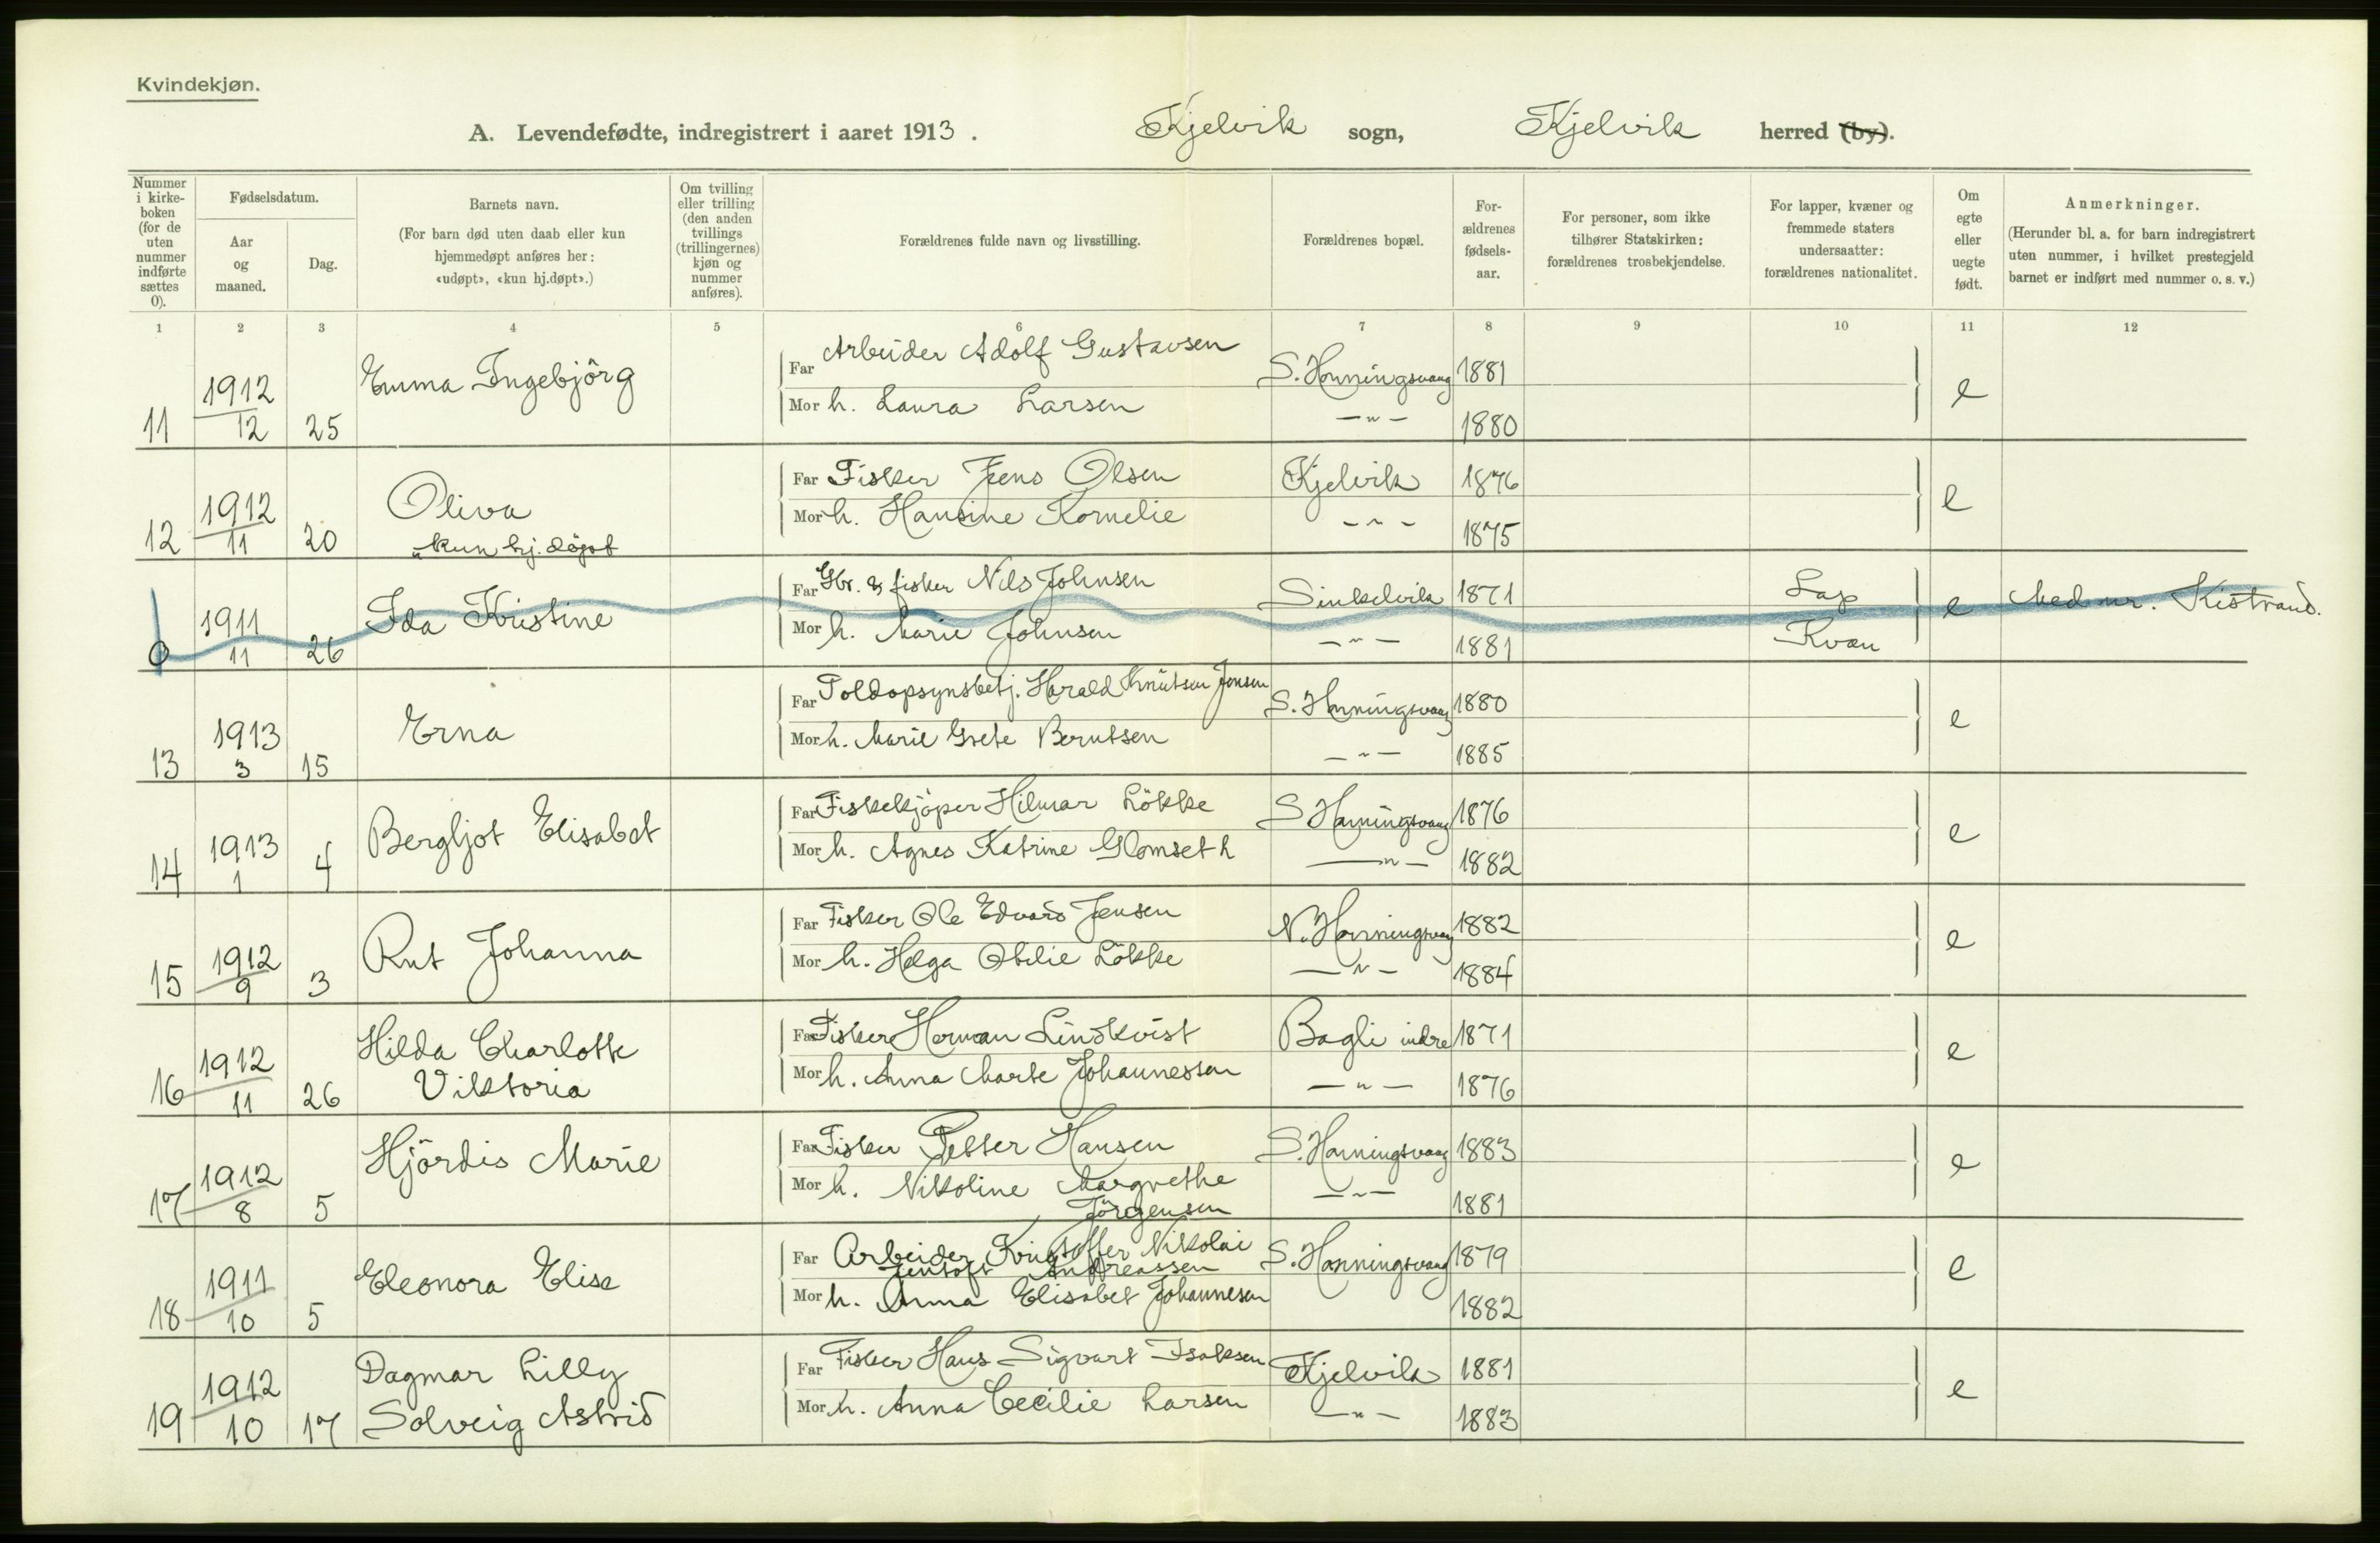 Kvindekjøn.
A. Levendefødte, indregistrert i aaret 1913. Kjelvik sogn, Kjelvik herred (by).
Nummer i kirkeboken (for de uten nummer indførte sættes 0).
Fødselsdatum.
Aar og maaned.
Dag.
Barnets navn.
(For barn død uten daab eller kun hjemmedøpt anføres her: «udøpt», «kun hj.døpt».)
Om tvilling eller trilling (den anden tvillings (trillingernes) kjøn og nummer anføres).
Forældrenes fulde navn og livsstilling.
Forældrenes bopæl.
Forældrenes fødselsaar.
For personer, som ikke tilhører Statskirken: forældrenes trosbekjendelse.
For lapper, kvæner og fremmede staters undersaatter: forældrenes nationalitet.
Om egte eller uegte født.
Anmerkninger.
(Herunder bl. a. for barn indregistrert uten nummer, i hvilket prestegjeld barnet er indført med nummer o. s. v.)
1 2 3 4 5 6 7 8 9 10 11 12
11 1912 12 25 Emma Ingebjörg
Far Arbeider Adolf Gustavsen S. Honningsvaag 1881 e
Mor h. Laura Larsen —"— 1880
12 1912 11 20 Oliva
"kun hj. døpt
Far Fisker Jens Olsen Kjelvik 1876 e
Mor h. Hansine Kornelie —"— 1875
0 1911 11 26 Ida Kristine
Far Gbr. & fisker Nils Johnsen Sinkelvik 1871 Lap e Med nr. Kistrand.
Mor h. Marie Johnsen —"— 1881 Kvæn
13 1913 3 15 Erna
Far Toldopsynsbetj. Harald Knutsen Jensen S. Honningsvaag 1880 e
Mor h. Marie Grete Berntsen —"— 1885
14 1913 1 4 Bergljot Elisabet
Far Fiskekjöper Hilmar Lökke S Honningsvaag 1876 e
Mor h. Agnes Katrine Glomseth —"— 1882
15 1912 9 3 Rut Johanna
Far Fisker Ole Edvard Jensen N. Honningsvaag 1882 e
Mor h. Helga Otilie Lökke —"— 1884
16 1912 11 26 Hilda Charlotte
Viktoria
Far Fisker Herman Lindkvist Bagli indre 1871 e
Mor h. Anna Marte Johannessen —"— 1876
17 1912 8 5 Hjördis Marie
Far Fisker Petter Hansen S. Honningsvaag 1883 e
Mor h. Nikoline Margrethe —"— 1881
Jörgensen
18 1911 10 5 Eleonora Elise
Far Arbeider Kristoffer Nikolai S. Honningsvaag 1879 e
Jentoft Andreassen
Mor h. Anna Elisabet Johannesen 1882
19 1912 10 17 Dagmar Lilly
Solveig Astrid
Far Fisker Hans Sigvart Isaksen Kjelvik 1881 e
Mor h. Anna Cecilie Larsen —"— 1883